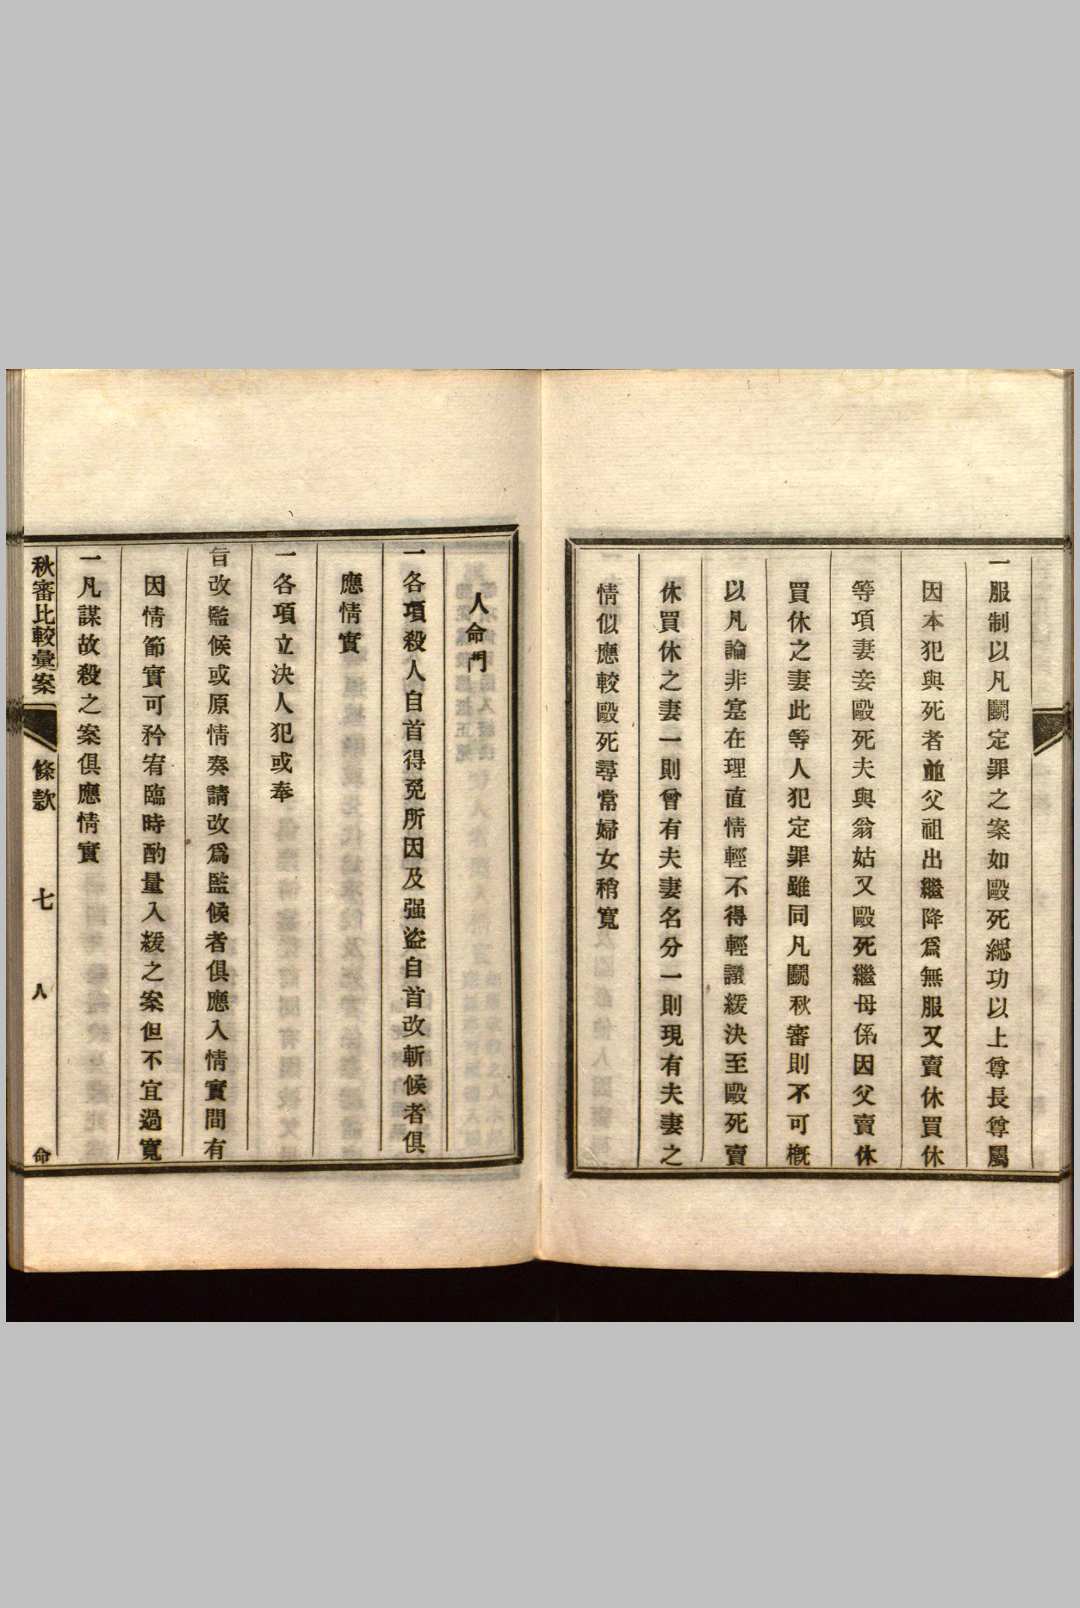 一服制以凡鬭定罪之案如毆死緦功以上尊長尊屬
因本犯與死者並父祖出繼降爲無服又賣休買休
等項妻妾毆死夫與翁姑又毆死繼母係因父賣休
買休之妻此等人犯定罪雖同凡鬭秋審則不可槪
以凡論非寔在理直情輕不得輕議緩決至毆死賣
休買休之妻一則曾有夫妻名分一則現有夫妻之
情似應較毆死尋常婦女稍寬
人命門
一各項殺人自首得免所因及强盜自首改斬候者俱
應情實
一各項立決人犯或奉
旨改監候或原情奏請改爲監候者俱應入情實間有
因情節實可矜宥臨時酌量入緩之案但不宜過寬
一凡謀故殺之案俱應情實
秋審比較彙案 條款 七 人 命